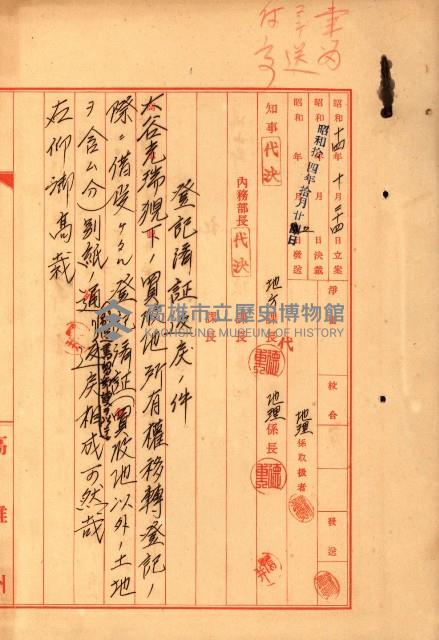 昭和十四年十月二十四日立案
昭和 年 月 日決裁
昭和 年 月 日發送
昭和拾四年拾月廿 日
淨書
校合
發送
知事 代決
內務部長 代決
地方課長 代
課長
課長
地理係長
地理係取扱者
登記済証返戾ノ件
大谷光瑞猊下ノ買收地所有權移轉登記ノ
際ニ借受ケタル登記済証(買收地以外ノ土地
ヲ含ム分)別紙ノ通 返戾相成可然哉
右仰御高裁
高雄州
高雄市立歷史博物館
KAOHSIUNG MUSEUM OF HISTORY